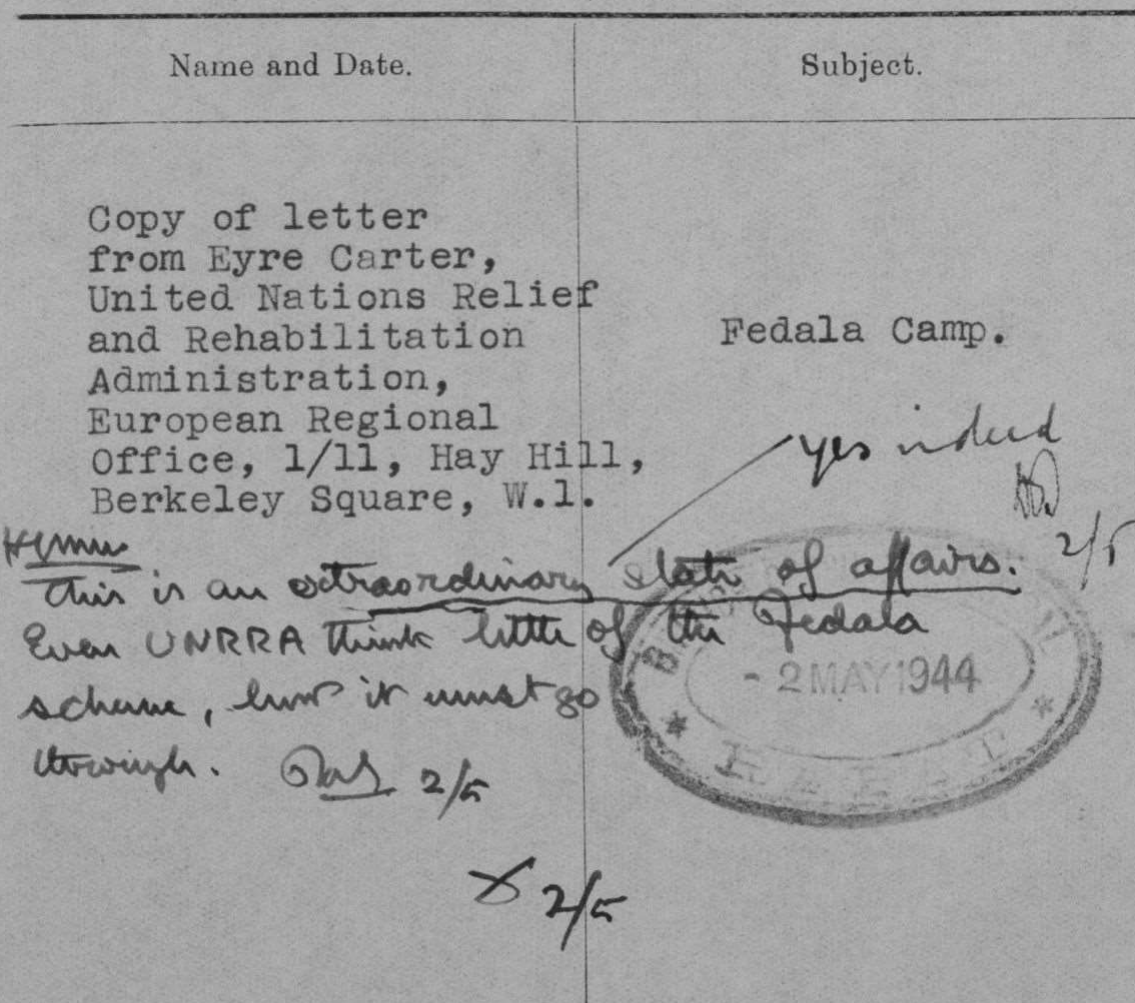 Name and Date.
Subject.
Copy of letter
from Eyre Carter,
United Nations Relief
and Rehabilitation
Administration,
European Regional
Office, 1/11, Hay Hill,
Berkeley Square, W.1.
Fedala Camp.
yes indeed
2/5
This is an extraordinary state of affairs.
Even UNRRA think little of the Fedala
scheme, but it must go
through. 2/5
- 2 MAY 1944
2/5